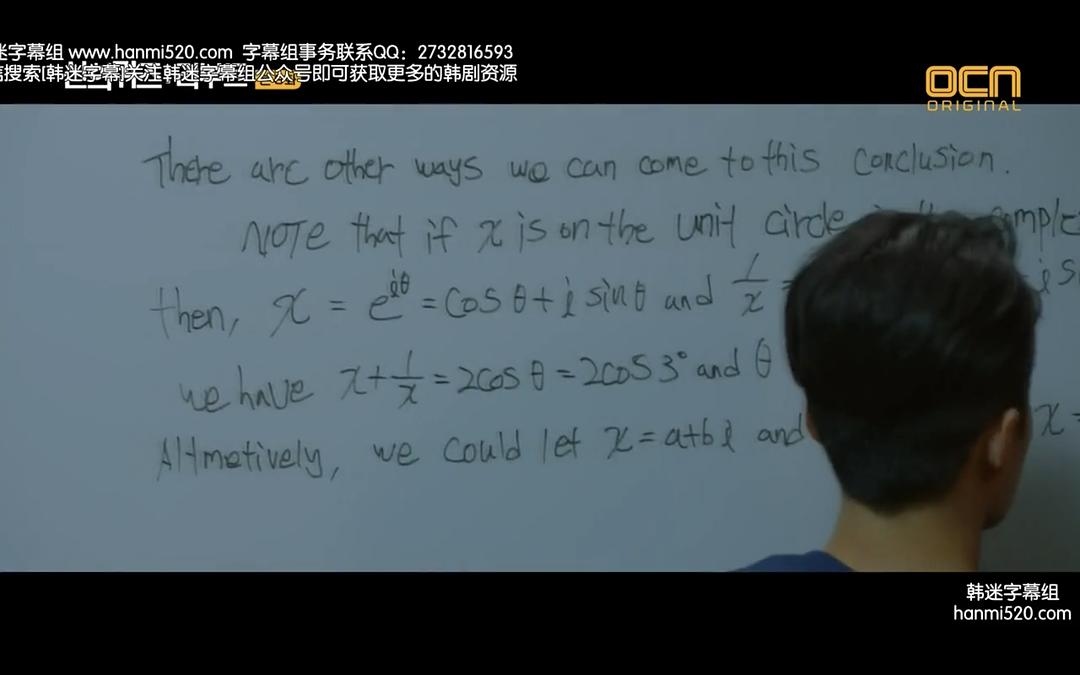 迷字幕组 www.hanmi520.com 字幕组事务联系QQ：2732816593
信搜索[韩迷字幕]关注韩迷字幕组公众号即可获取更多的韩剧资源
OCN
ORIGINAL
There are other ways we can come to this conclusion.
NOTE that if x is on the unit circle
then, x = e^{iθ} = cos θ + i sin θ and 1/x =
we have x + 1/x = 2cos θ = 2cos 3° and θ
Altrnatively, we could let x = a+bi and x =
韩迷字幕组
hanmi520.com